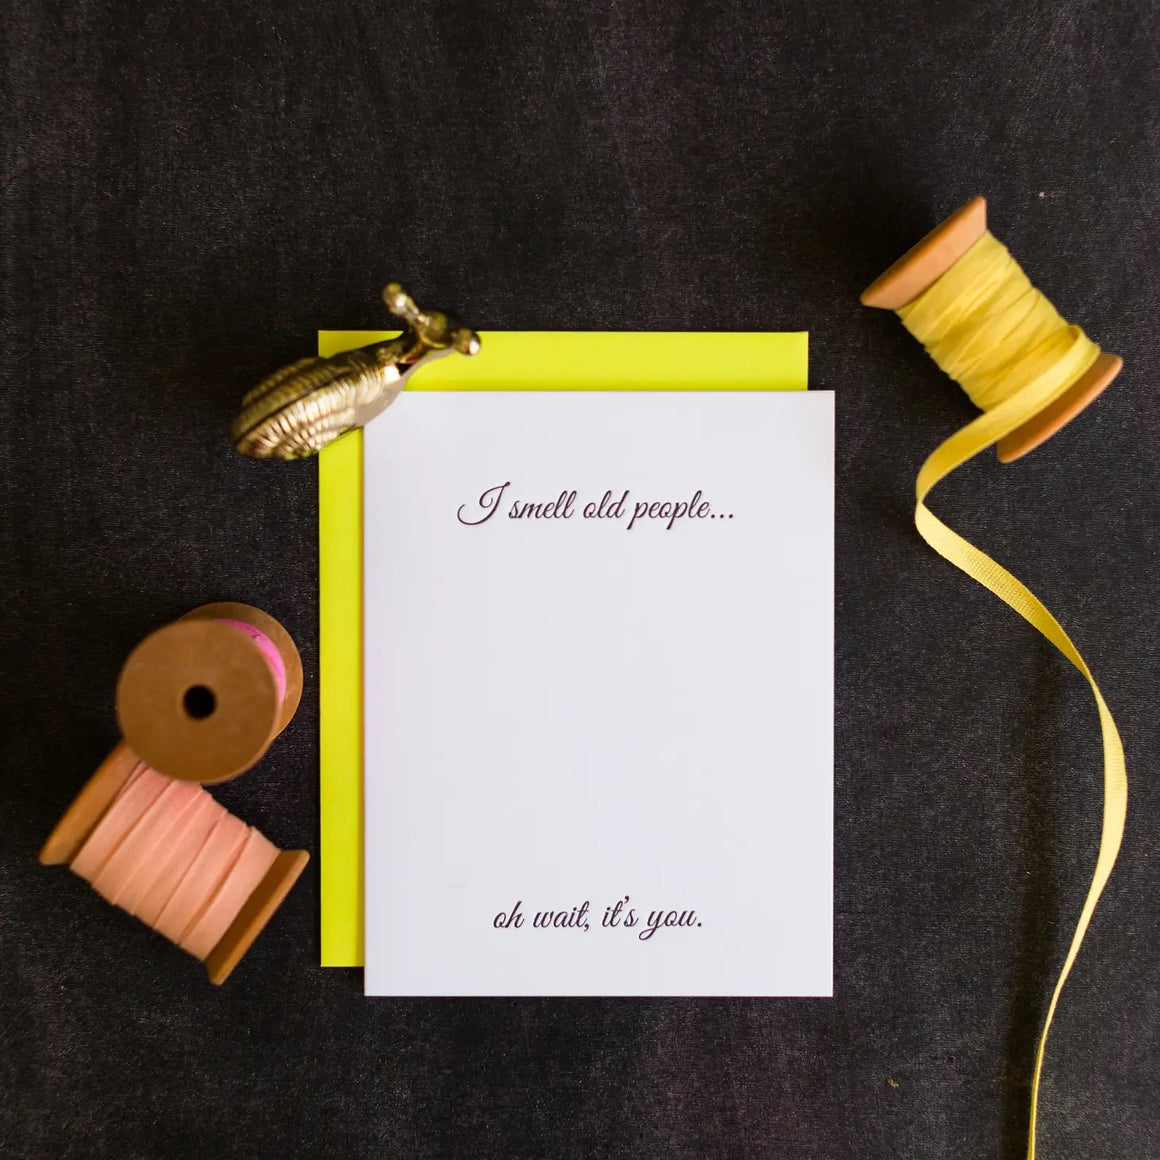 I smell old people...
oh wait, it's you.